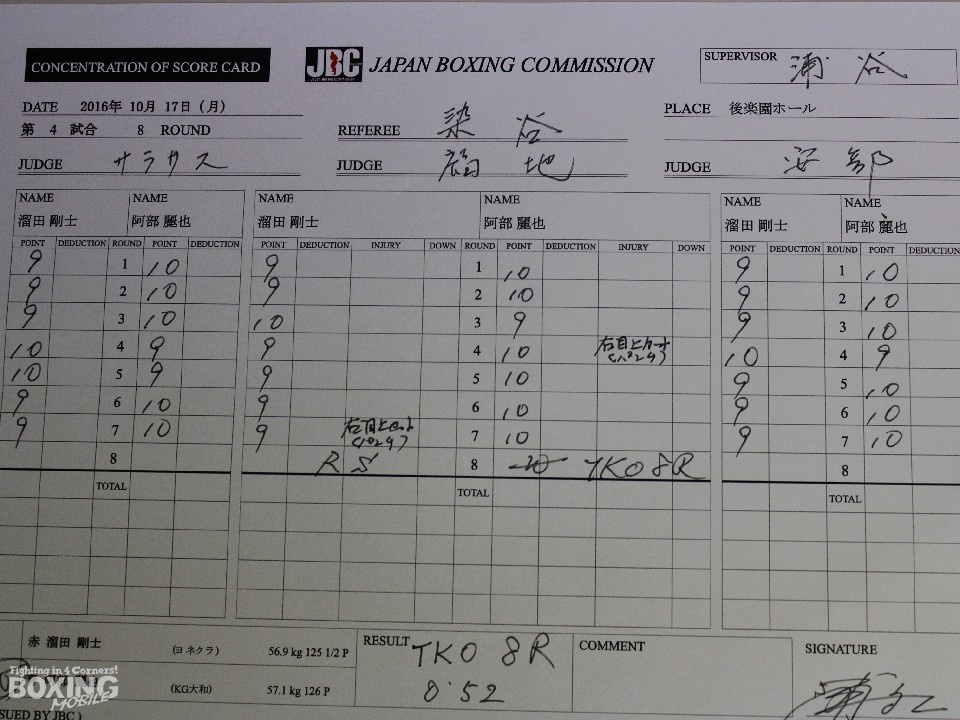 CONCENTRATION OF SCORE CARD
JBC JAPAN BOXING COMMISSION
SUPERVISOR 浦谷
DATE 2016年 10月 17日（月）
PLACE 後楽園ホール
第 4 試合 8 ROUND
REFEREE 染谷
JUDGE サラサス
JUDGE 福地
JUDGE 安部
NAME NAME NAME NAME NAME NAME
溜田 剛士 阿部 麗也 溜田 剛士 阿部 麗也 溜田 剛士 阿部 麗也
POINT DEDUCTION ROUND POINT DEDUCTION POINT DEDUCTION INJURY DOWN ROUND POINT DEDUCTION INJURY DOWN POINT DEDUCTION ROUND POINT DEDUCTION
9 1 10 9 1 10 9 1 10
9 2 10 9 2 10 9 2 10
9 3 10 10 3 9 9 3 10
10 4 9 9 4 10 右目上カット (パンチ) 10 4 9
10 5 9 9 5 10 9 5 10
9 6 10 9 6 10 9 6 10
9 7 10 9 右目上カット (パンチ) 7 10 9 7 10
8 RS 8 TKO 8R 8
TOTAL TOTAL TOTAL
赤 溜田 剛士 (ヨネクラ) 56.9 kg 125 1/2 P
(KG大和) 57.1 kg 126 P
RESULT TKO 8R
0'52
COMMENT
SIGNATURE
Fighting in 4 Corners!
BOXING
MOBILE
SUED BY JBC )